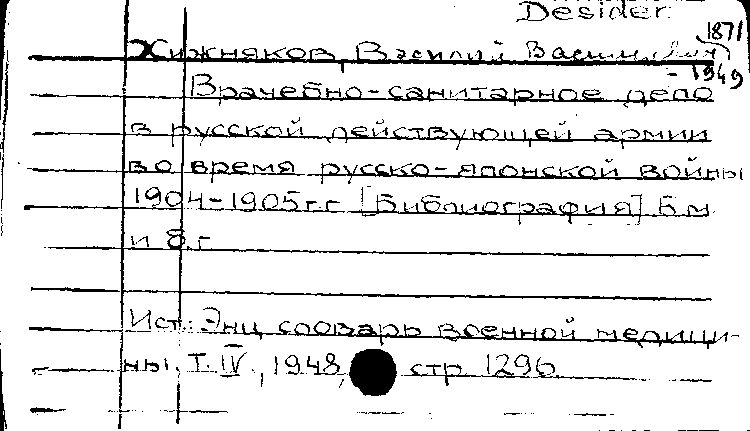 Desider.
1871
Хижняков, Василий Васильевич
- 1949
Врачебно-санитарное дело
в русской действующей армии
во время русско-японской войны
1904-1905 г.г. [Библиография] Б.м.
и б.г.
Ист.: Энц. словарь военной медици-
ны, Т. IV., 1948, стр. 1296.